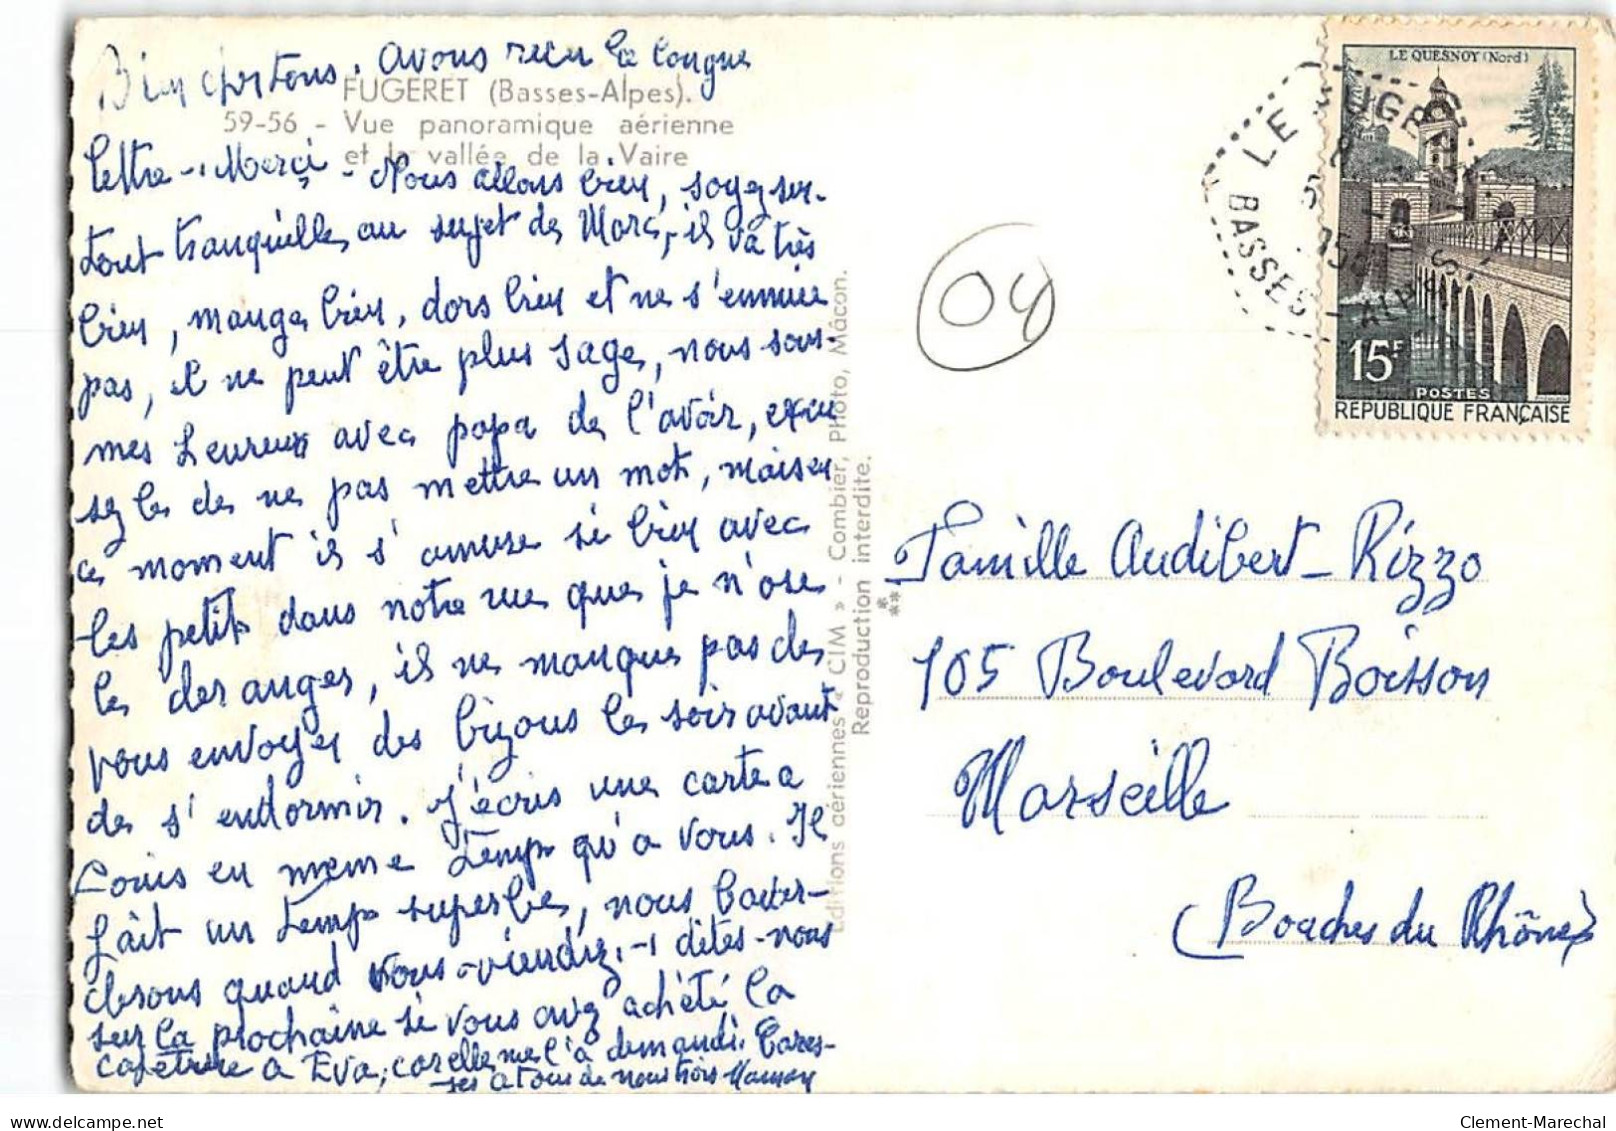 Bien portons. avons reçu la longue
FUGERET (Basses-Alpes).
59-56 - Vue panoramique aérienne
et la vallée de la Vaire
lettre -. Merci - Nous allons bien, soyez sur-
tout tranquilles au sujet de Marc, il va très
bien, mange bien, dors bien et ne s'ennuie
pas, il ne peut être plus sage, nous som-
mes heureux avec papa de l'avoir, excu
sez le de ne pas mettre un mot, mais en
ce moment il s'amuse si bien avec
les petits dans notre rue que je n'ose
le déranger, il ne manque pas de
vous envoyer des bizous le soir avant
de s'endormir. J'écris une carte a
Louis en meme temps qu'a vous. Il
fait un temps superbe, nous
quand vous viendrez. - dites-nous
sur la prochaine si vous avez achété la
a Eva, car elle me l'a demandé. Cares-
ses a tous de nous trois Maman
Editions aériennes « CIM » - Combier, Photo, Mâcon.
Reproduction interdite.
04
LE FUGERET
BASSES-ALPES
LE QUESNOY (Nord)
15F
POSTES
REPUBLIQUE FRANÇAISE
Famille Audibert-Rizzo
105 Boulevard Boisson
Marseille
(Bouches du Rhône)
Clement-Marechal